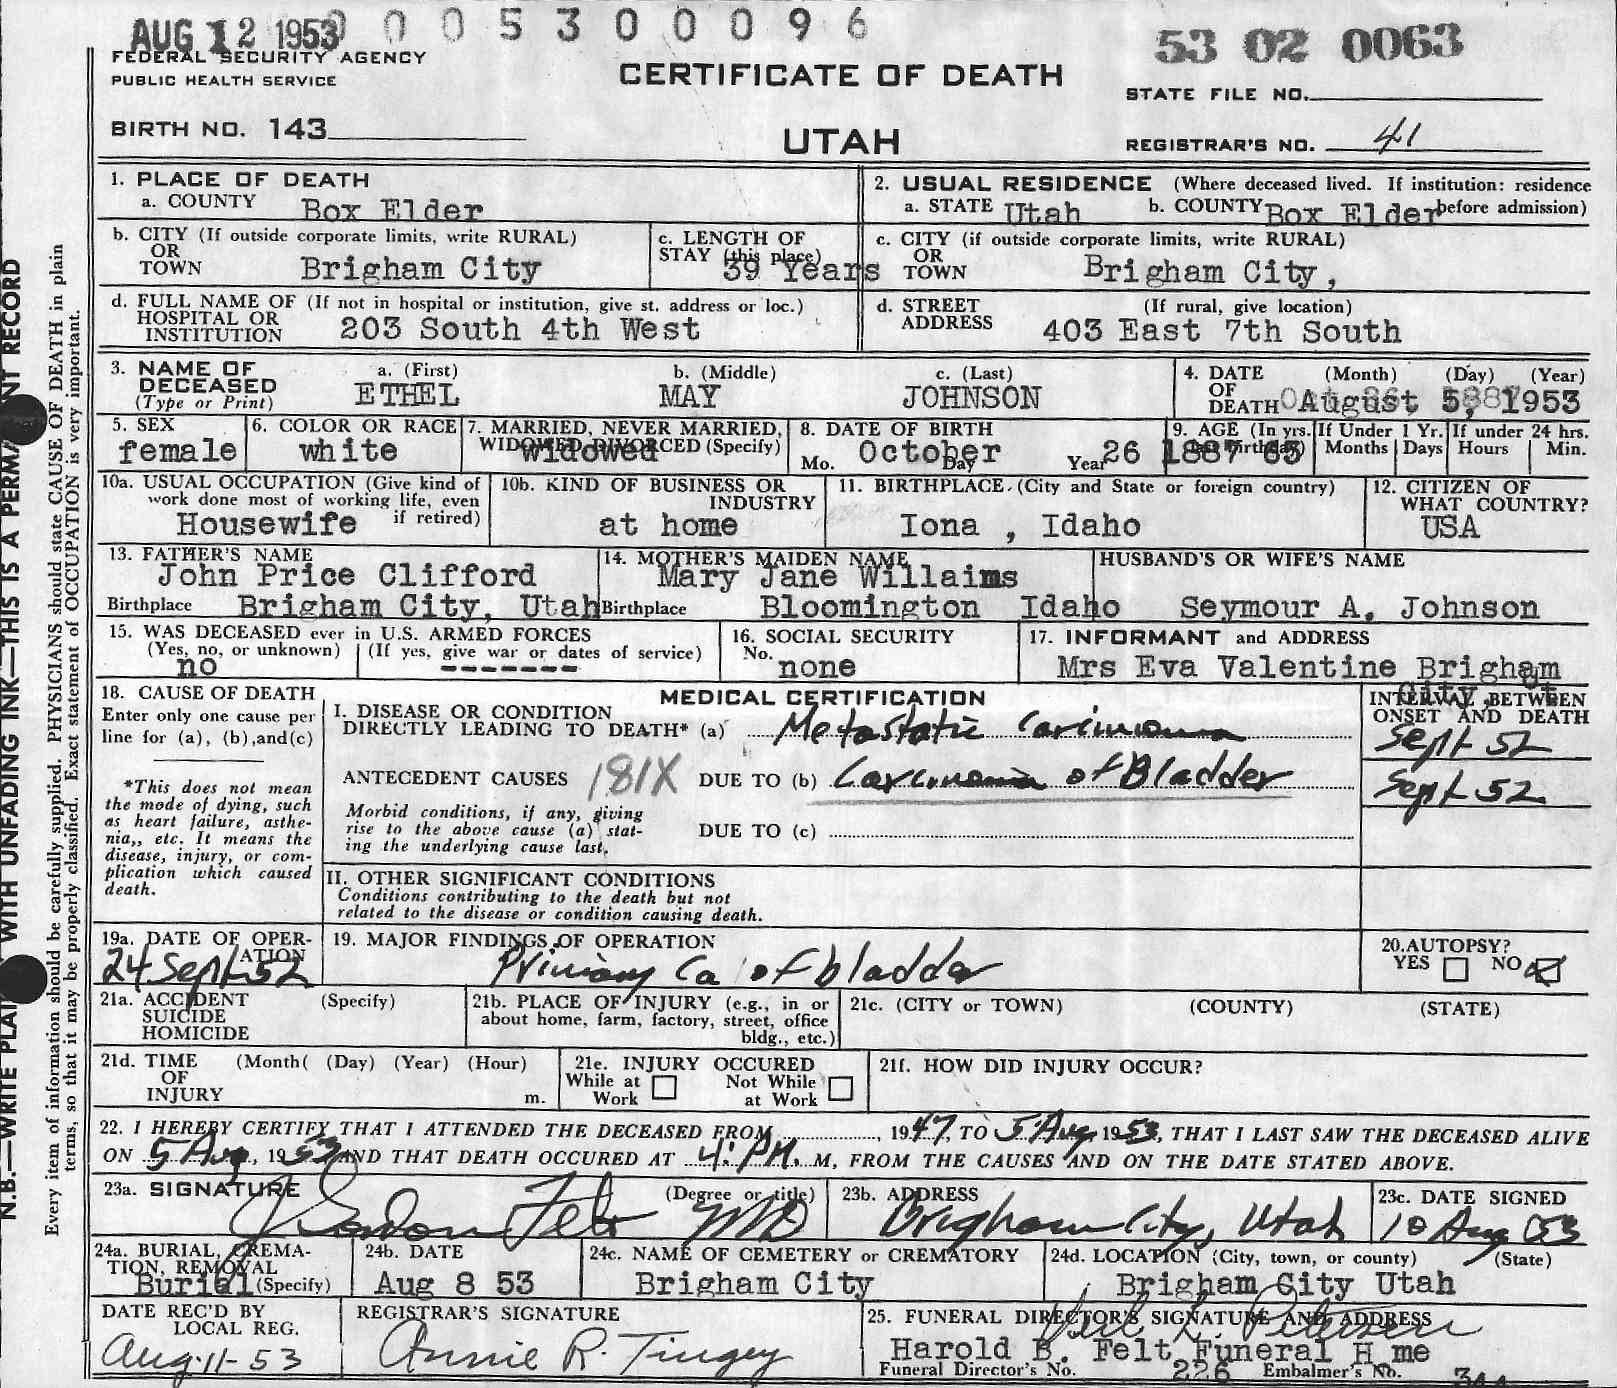 AUG 12 1953 0 0 0 5 3 0 0 0 9 6
53 02 0063
FEDERAL SECURITY AGENCY
PUBLIC HEALTH SERVICE
CERTIFICATE OF DEATH
STATE FILE NO.
BIRTH NO. 143
UTAH
REGISTRAR'S NO. 41
1. PLACE OF DEATH
a. COUNTY Box Elder
2. USUAL RESIDENCE (Where deceased lived. If institution: residence before admission)
a. STATE Utah b. COUNTY Box Elder
b. CITY (If outside corporate limits, write RURAL)
OR
TOWN Brigham City
c. LENGTH OF
STAY (this place)
39 Years
c. CITY (if outside corporate limits, write RURAL)
OR
TOWN Brigham City,
d. FULL NAME OF (If not in hospital or institution, give st. address or loc.)
HOSPITAL OR
INSTITUTION 203 South 4th West
d. STREET (If rural, give location)
ADDRESS 403 East 7th South
3. NAME OF
DECEASED
(Type or Print)
a. (First) b. (Middle) c. (Last)
ETHEL MAY JOHNSON
4. DATE (Month) (Day) (Year)
OF
DEATH August 5, 1953
5. SEX
female
6. COLOR OR RACE
white
7. MARRIED, NEVER MARRIED,
WIDOWED, DIVORCED (Specify)
widowed
8. DATE OF BIRTH
Mo. October Day Year 26 1887
9. AGE (In yrs. last birthday) 65
If Under 1 Yr. If under 24 hrs.
Months Days Hours Min.
10a. USUAL OCCUPATION (Give kind of
work done most of working life, even
if retired)
Housewife
10b. KIND OF BUSINESS OR
INDUSTRY
at home
11. BIRTHPLACE (City and State or foreign country)
Iona , Idaho
12. CITIZEN OF
WHAT COUNTRY?
USA
13. FATHER'S NAME
John Price Clifford
Birthplace Brigham City, Utah
14. MOTHER'S MAIDEN NAME
Mary Jane Willaims
Birthplace Bloomington Idaho
HUSBAND'S OR WIFE'S NAME
Seymour A. Johnson
15. WAS DECEASED ever in U.S. ARMED FORCES
(Yes, no, or unknown) (If yes, give war or dates of service)
no -------
16. SOCIAL SECURITY
No. none
17. INFORMANT and ADDRESS
Mrs Eva Valentine Brigham
City, Ut
18. CAUSE OF DEATH
Enter only one cause per
line for (a), (b),and(c)
*This does not mean
the mode of dying, such
as heart failure, asthe-
nia,, etc. It means the
disease, injury, or com-
plication which caused
death.
MEDICAL CERTIFICATION
I. DISEASE OR CONDITION
DIRECTLY LEADING TO DEATH* (a) Metastatic Carcinoma
INTERVAL BETWEEN
ONSET AND DEATH
Sept 52
ANTECEDENT CAUSES 181X DUE TO (b) Carcinoma of Bladder
Sept 52
Morbid conditions, if any, giving
rise to the above cause (a) stat-
ing the underlying cause last.
DUE TO (c)
II. OTHER SIGNIFICANT CONDITIONS
Conditions contributing to the death but not
related to the disease or condition causing death.
19a. DATE OF OPER-
ATION
24 Sept 52
19. MAJOR FINDINGS OF OPERATION
Primary Ca of bladder
20.AUTOPSY?
YES NO
21a. ACCIDENT (Specify)
SUICIDE
HOMICIDE
21b. PLACE OF INJURY (e.g., in or
about home, farm, factory, street, office
bldg., etc.)
21c. (CITY or TOWN) (COUNTY) (STATE)
21d. TIME (Month( (Day) (Year) (Hour)
OF
INJURY m.
21e. INJURY OCCURED
While at Work Not While at Work
21f. HOW DID INJURY OCCUR?
22. I HEREBY CERTIFY THAT I ATTENDED THE DECEASED FROM , 1947, TO 5 Aug, 1953, THAT I LAST SAW THE DECEASED ALIVE
ON 5 Aug, 1953 AND THAT DEATH OCCURED AT 4: PM. M, FROM THE CAUSES AND ON THE DATE STATED ABOVE.
23a. SIGNATURE (Degree or title)
J Gordon Felt MD
23b. ADDRESS
Brigham City, Utah
23c. DATE SIGNED
10 Aug 53
24a. BURIAL, CREMA-
TION, REMOVAL
Burial (Specify)
24b. DATE
Aug 8 53
24c. NAME OF CEMETERY or CREMATORY
Brigham City
24d. LOCATION (City, town, or county) (State)
Brigham City Utah
DATE REC'D BY
LOCAL REG.
Aug-11-53
REGISTRAR'S SIGNATURE
Annie R. Tingey
25. FUNERAL DIRECTOR'S SIGNATURE AND ADDRESS
Petersen
Harold B. Felt Funeral H me
Funeral Director's No. 226 Embalmer's No.
N.B.—WRITE PLAI WITH UNFADING INK—THIS IS A PERMA NT RECORD
Every item of information should be carefully supplied. PHYSICIANS should state CAUSE OF DEATH in plain
terms, so that it may be properly classified. Exact statement of OCCUPATION is very important.